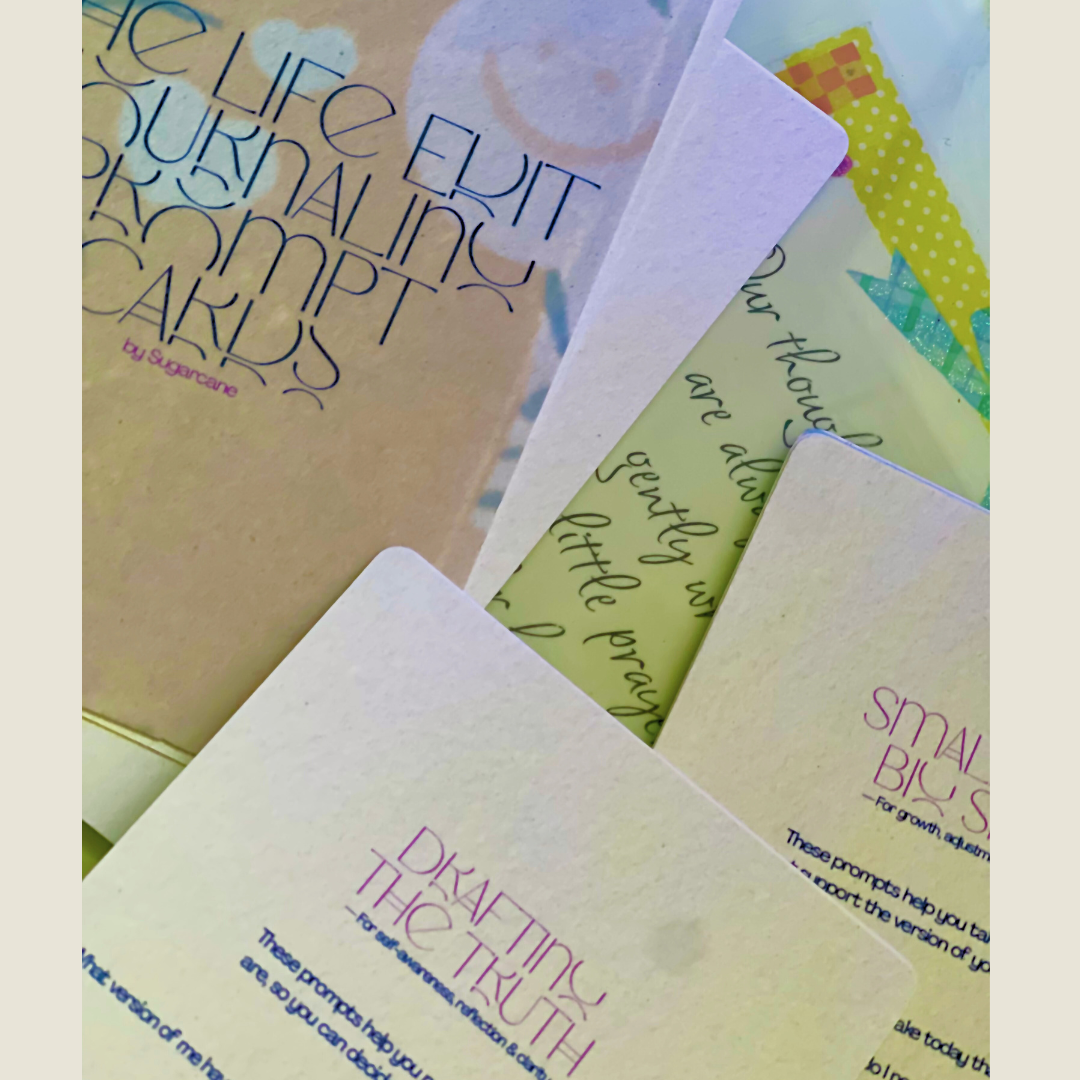 THE LIFE EDIT
JOURNALING
PROMPT
CARDS
by Sugarcane
Our though
are alw
gently w
little praye
SMAL
BIG S
—For growth, adjustm
These prompts help you ta
support the version of yo
ake today th
do I n
DRAFTING
THE TRUTH
—For self-awareness, reflection & clarity
These prompts help you
are, so you can decid
What version of me hav